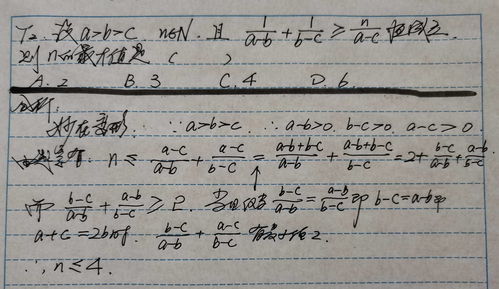 T₂. 设 a>b>c. n∈N. 且 1/(a-b) + 1/(b-c) ≥ n/(a-c) 恒成立.
则 n 的最大值是 ( )
A. 2 B. 3 C. 4 D. 6.
分析:
∵ a>b>c. ∴ a-b>0. b-c>0. a-c>0.
n ≤ (a-c)/(a-b) + (a-c)/(b-c) = (a-b+b-c)/(a-b) + (a-b+b-c)/(b-c) = 2 + (b-c)/(a-b) + (a-b)/(b-c)
而 (b-c)/(a-b) + (a-b)/(b-c) ≥ 2. 当且仅当 (b-c)/(a-b) = (a-b)/(b-c) 即 b-c=a-b 即
a+c=2b时. (b-c)/(a-b) + (a-c)/(b-c) 有最小值 2.
∴ n ≤ 4.